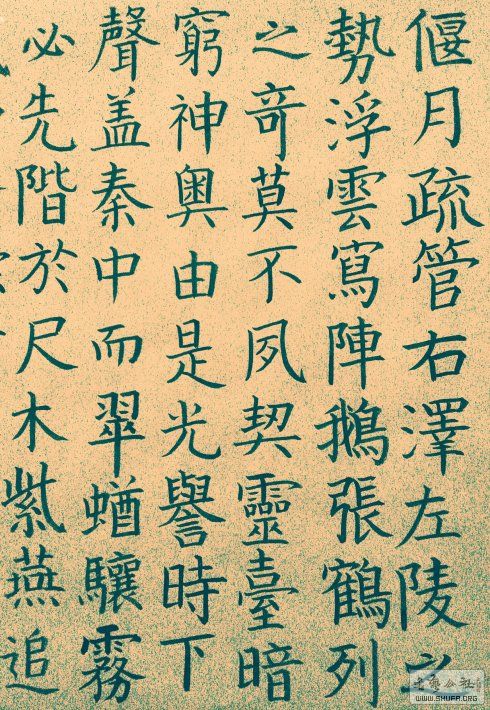 偃月疏管右澤左陵之
勢浮雲寫陣鵝張鶴列
之奇莫不夙契靈臺暗
窮神奧由是光譽時下
聲盖秦中而翠蝤驤霧
必先階於尺木紫燕追
WWW.SHUFA.ORG